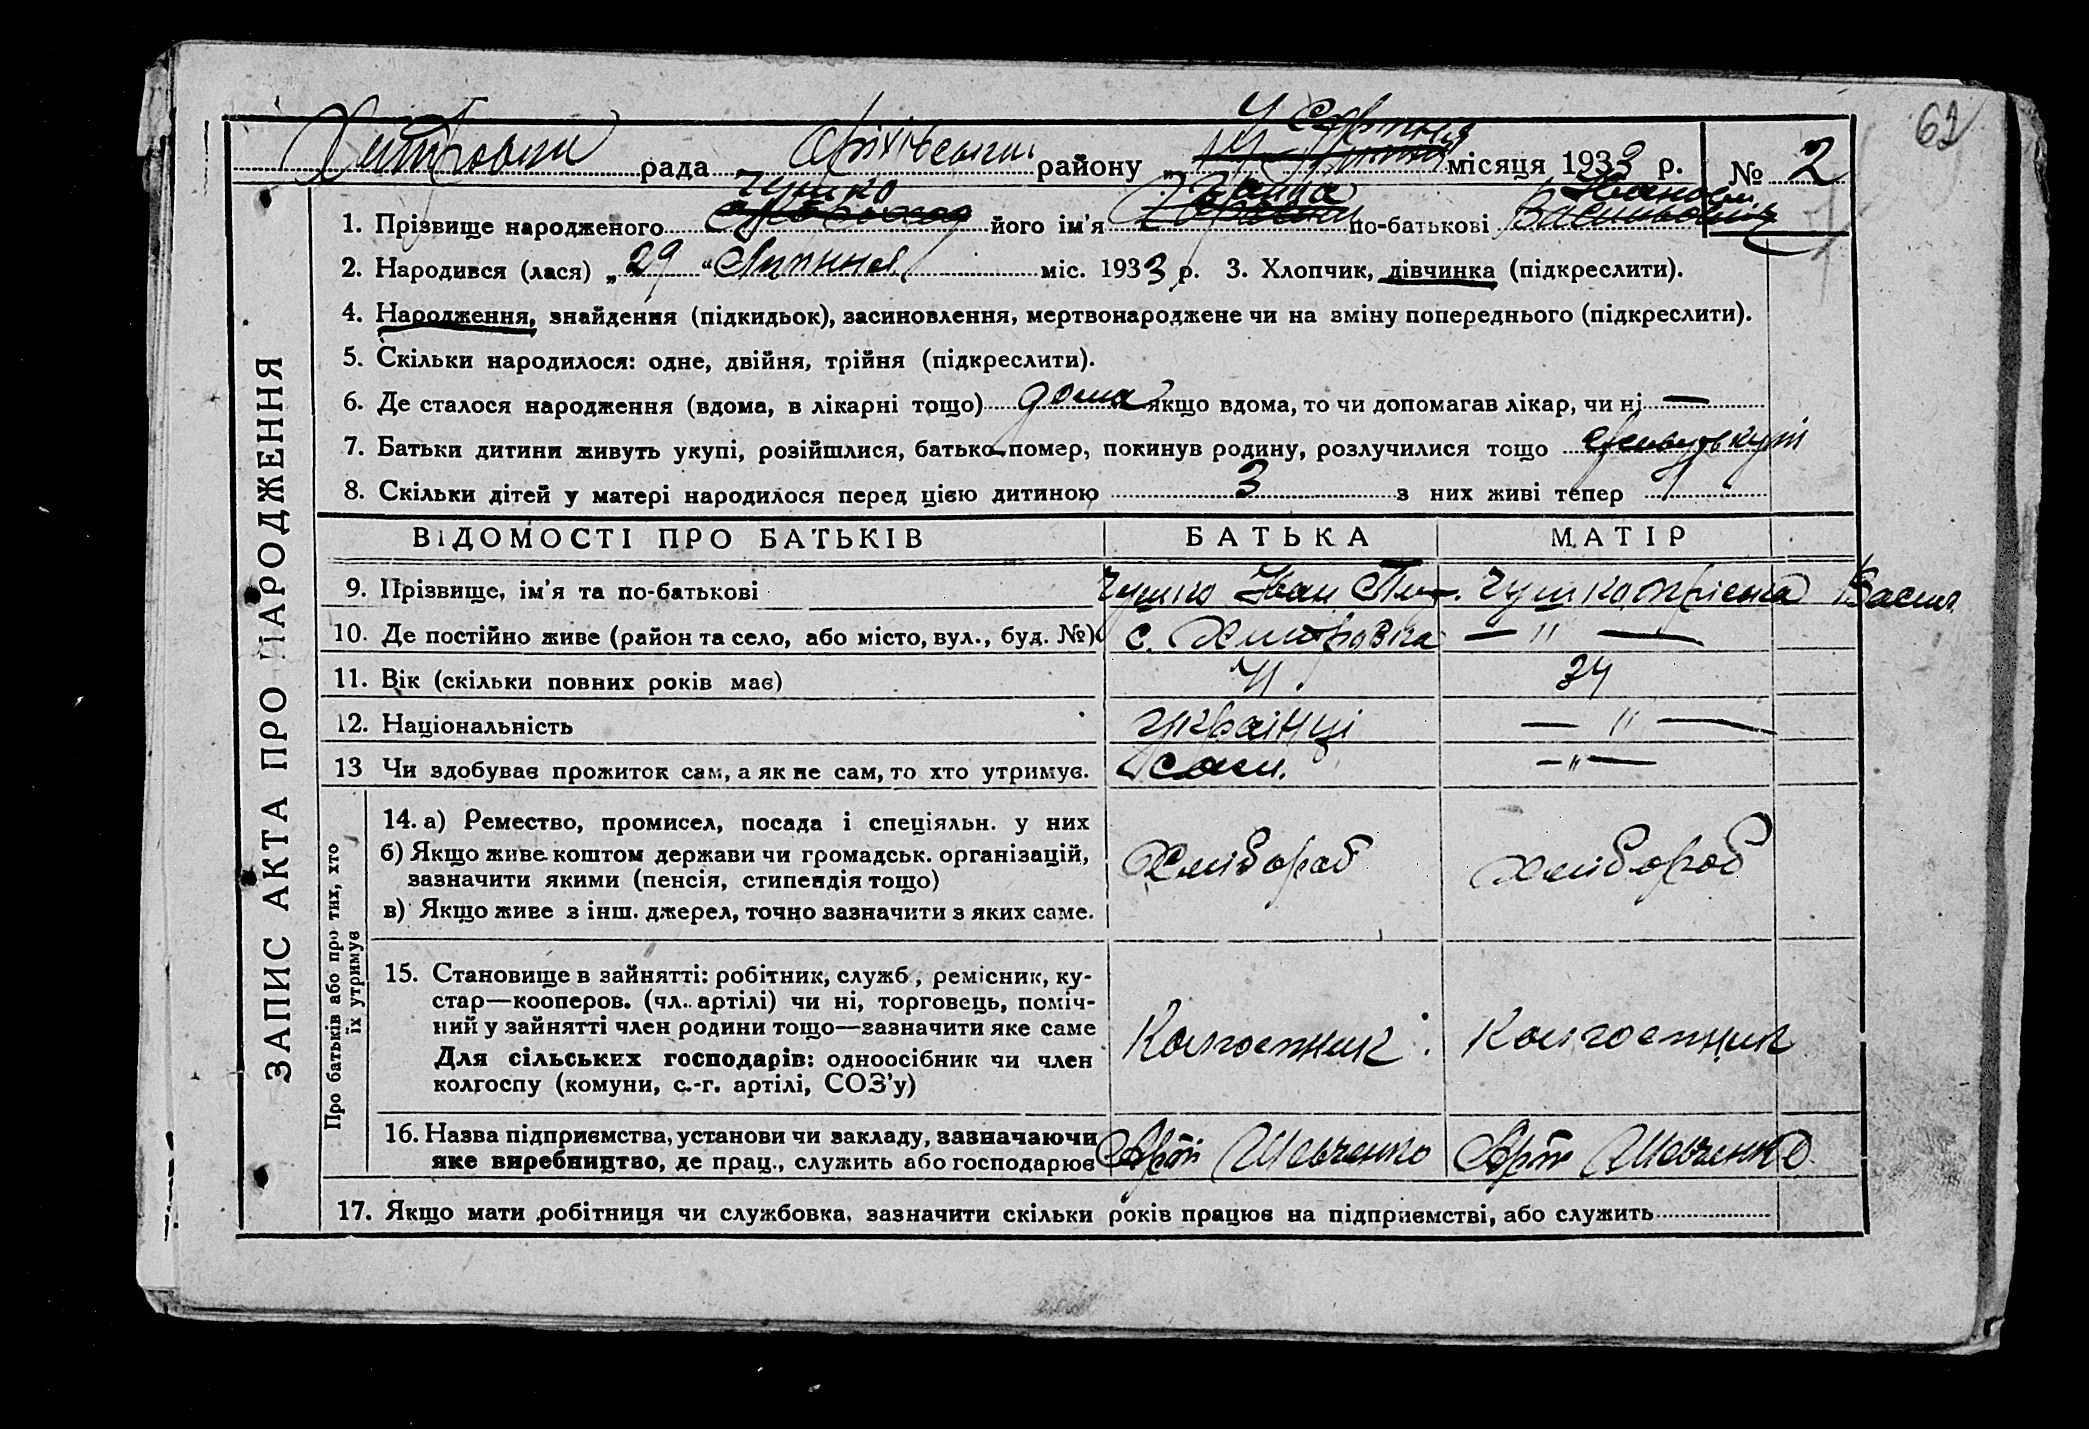 62
рада району „ 4 Серпня місяця 1933 р. № 2
Чушко Ганна Іванов.
1. Прізвище народженого його ім'я по-батькові
2. Народився (лася) „29“ Липня міс. 1933 р. 3. Хлопчик, дівчинка (підкреслити).
4. Народження, знайдення (підкидьок), засиновлення, мертвонароджене чи на зміну попереднього (підкреслити).
5. Скільки народилося: одне, двійня, трійня (підкреслити).
6. Де сталося народження (вдома, в лікарні тощо) дома якщо вдома, то чи допомагав лікар, чи ні —
7. Батьки дитини живуть укупі, розійшлися, батько помер, покинув родину, розлучилися тощо
8. Скільки дітей у матері народилося перед цією дитиною 3 з них живі тепер
ЗАПИС АКТА ПРО НАРОДЖЕННЯ
ВІДОМОСТІ ПРО БАТЬКІВ БАТЬКА МАТІР
9. Прізвище, ім'я та по-батькові Чушко Іван Чушко Василь
10. Де постійно живе (район та село, або місто, вул., буд. №) с. — " —
11. Вік (скільки повних років має) 41. 34
12. Національність українці — " —
13 Чи здобував прожиток сам, а як не сам, то хто утримує. сам. — " —
Про батьків або про тих, хто їх утримує
14. а) Ремество, промисел, посада і спеціяльн. у них
б) Якщо живе коштом держави чи громадськ. організацій,
зазначити якими (пенсія, стипендія тощо) Хлібороб хлібороб
в) Якщо живе з інш. джерел, точно зазначити з яких саме.
15. Становище в зайнятті: робітник, служб., ремісник, ку-
стар—кооперов. (чл. артілі) чи ні, торговець, поміч-
ний у зайнятті член родини тощо—зазначити яке саме
Колгоспник Колгоспник
Для сільських господарів: одноосібник чи член
колгоспу (комуни, с.-г. артілі, СОЗ'у)
16. Назва підприємства, установи чи закладу, зазначаючи
яке виребництво, де прац., служить або господарює Арт Шевченко Арт Шевченко
17. Якщо мати робітниця чи службовка, зазначити скільки років працює на підприємстві, або служить